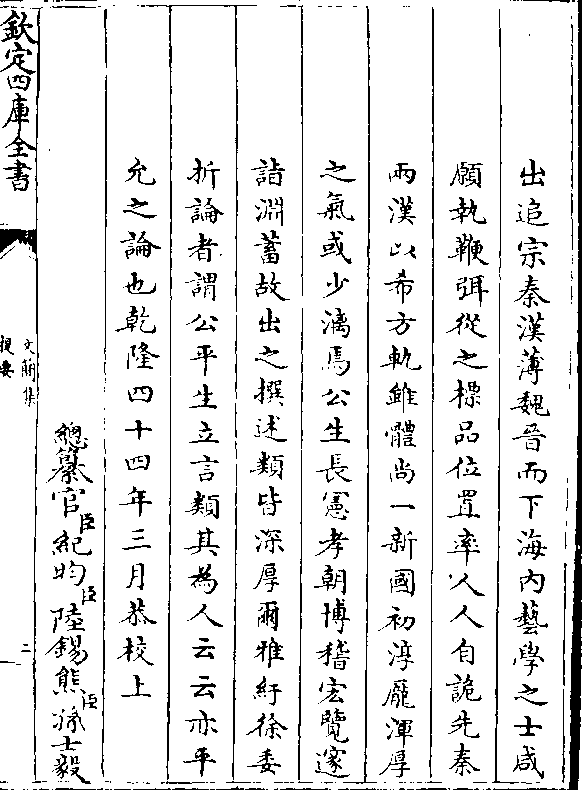 出追宗秦漢薄魏晉而下海内藝學之士咸
願執鞭弭從之標品位置率人人自詭先秦
兩漢以希方軌雖體尚一新國初淳龎渾厚
之氣或少漓焉公生長憲孝朝博稽宏覽邃
詣淵蓄故出之撰述類皆深厚爾雅紆徐委
折論者謂公平生立言類其為人云云亦平
允之論也乾隆四十四年三月恭校上
總纂官臣紀昀臣陸錫熊臣孫士毅
欽定四庫全書
文簡集
提要
二